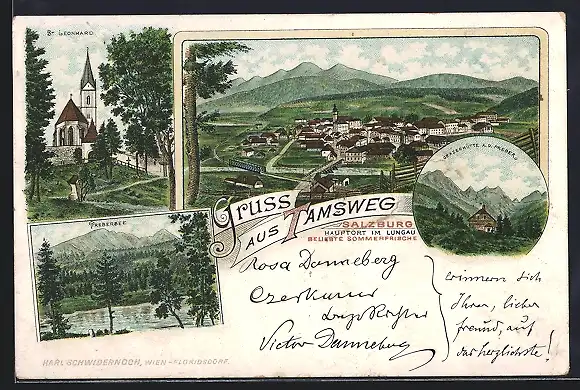 St LEONHARD
GRAZERHÜTTE A.D. PREBER
PREBERSEE
Gruss
AUS TAMSWEG
SALZBURG
HAUPTORT IM LUNGAU
BELIEBTE SOMMERFRISCHE
Rosa Danneberg
Victor Danneberg
erinnern sich
Ihrer, lieber
freund, auf
das herzlichste!
KARL SCHWIDERNOCH, WIEN-FLORIDSDORF.